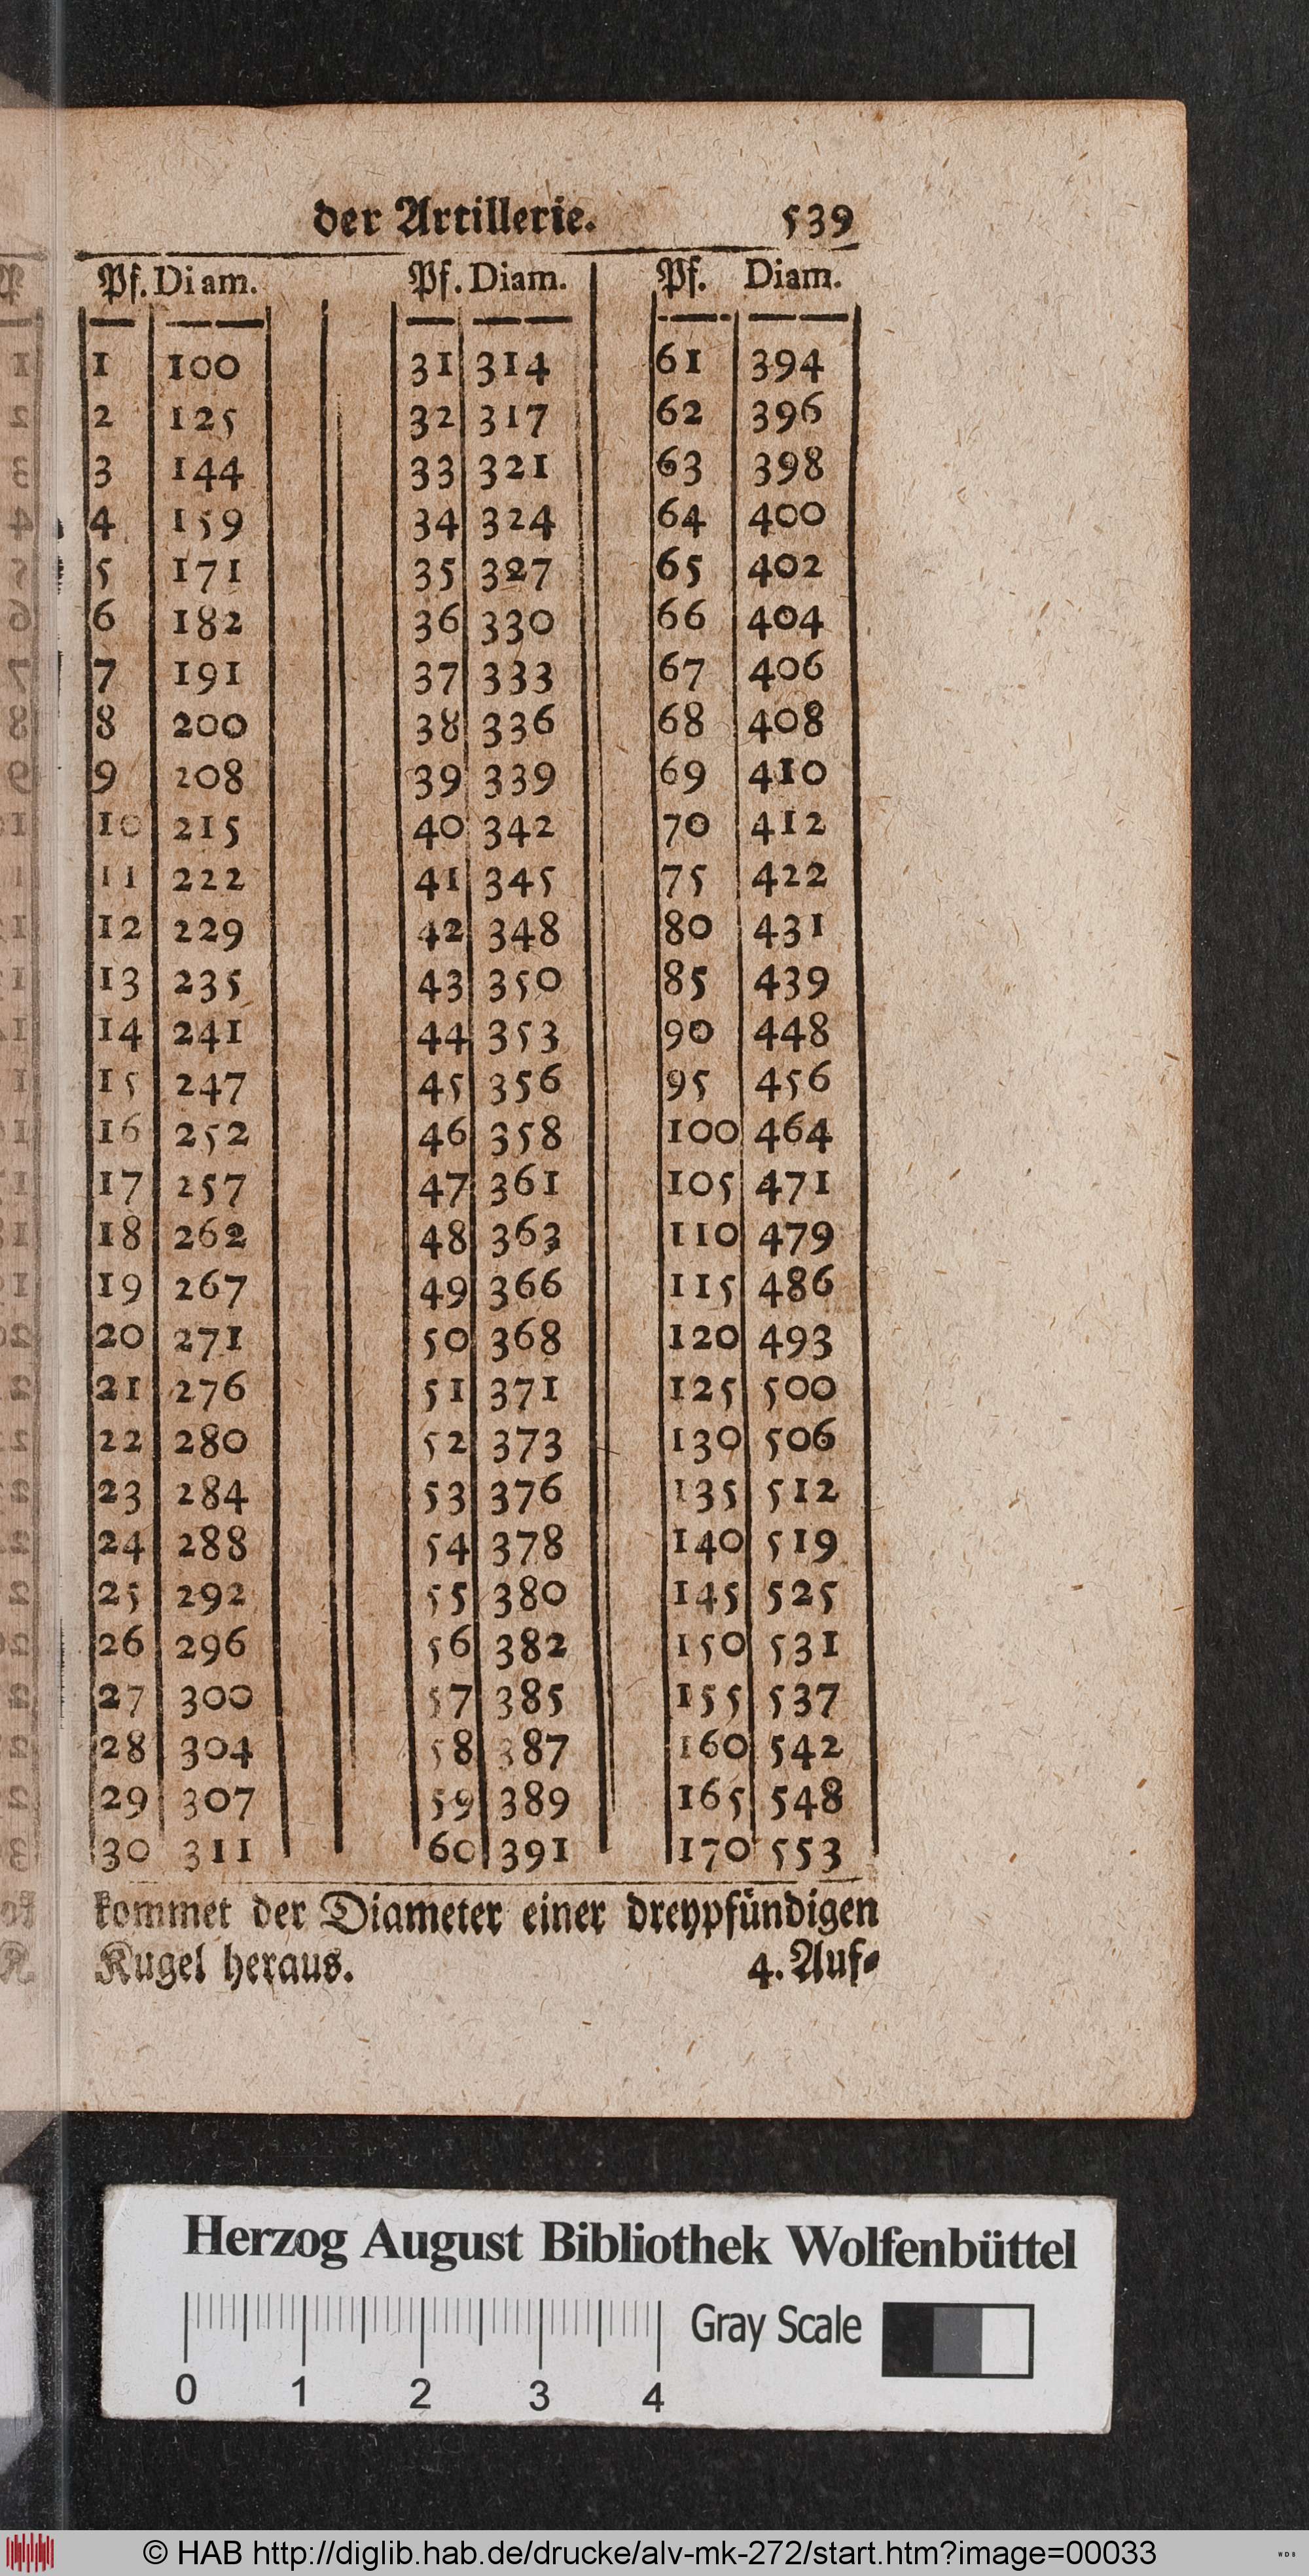 der Artillerie. 539
Pf. Diam. Pf. Diam. Pf. Diam.
1 100 31 314 61 394
2 125 32 317 62 396
3 144 33 321 63 398
4 159 34 324 64 400
5 171 35 327 65 402
6 182 36 330 66 404
7 191 37 333 67 406
8 200 38 336 68 408
9 208 39 339 69 410
10 215 40 342 70 412
11 222 41 345 75 422
12 229 42 348 80 431
13 235 43 350 85 439
14 241 44 353 90 448
15 247 45 356 95 456
16 252 46 358 100 464
17 257 47 361 105 471
18 262 48 363 110 479
19 267 49 366 115 486
20 271 50 368 120 493
21 276 51 371 125 500
22 280 52 373 130 506
23 284 53 376 135 512
24 288 54 378 140 519
25 292 55 380 145 525
26 296 56 382 150 531
27 300 57 385 155 537
28 304 58 387 160 542
29 307 59 389 165 548
30 311 60 391 170 553
kommet der Diameter einer dreypfündigen
Kugel heraus. 4. Auf⸗
Herzog August Bibliothek Wolfenbüttel
Gray Scale
0 1 2 3 4
© HAB http://diglib.hab.de/drucke/alv-mk-272/start.htm?image=00033